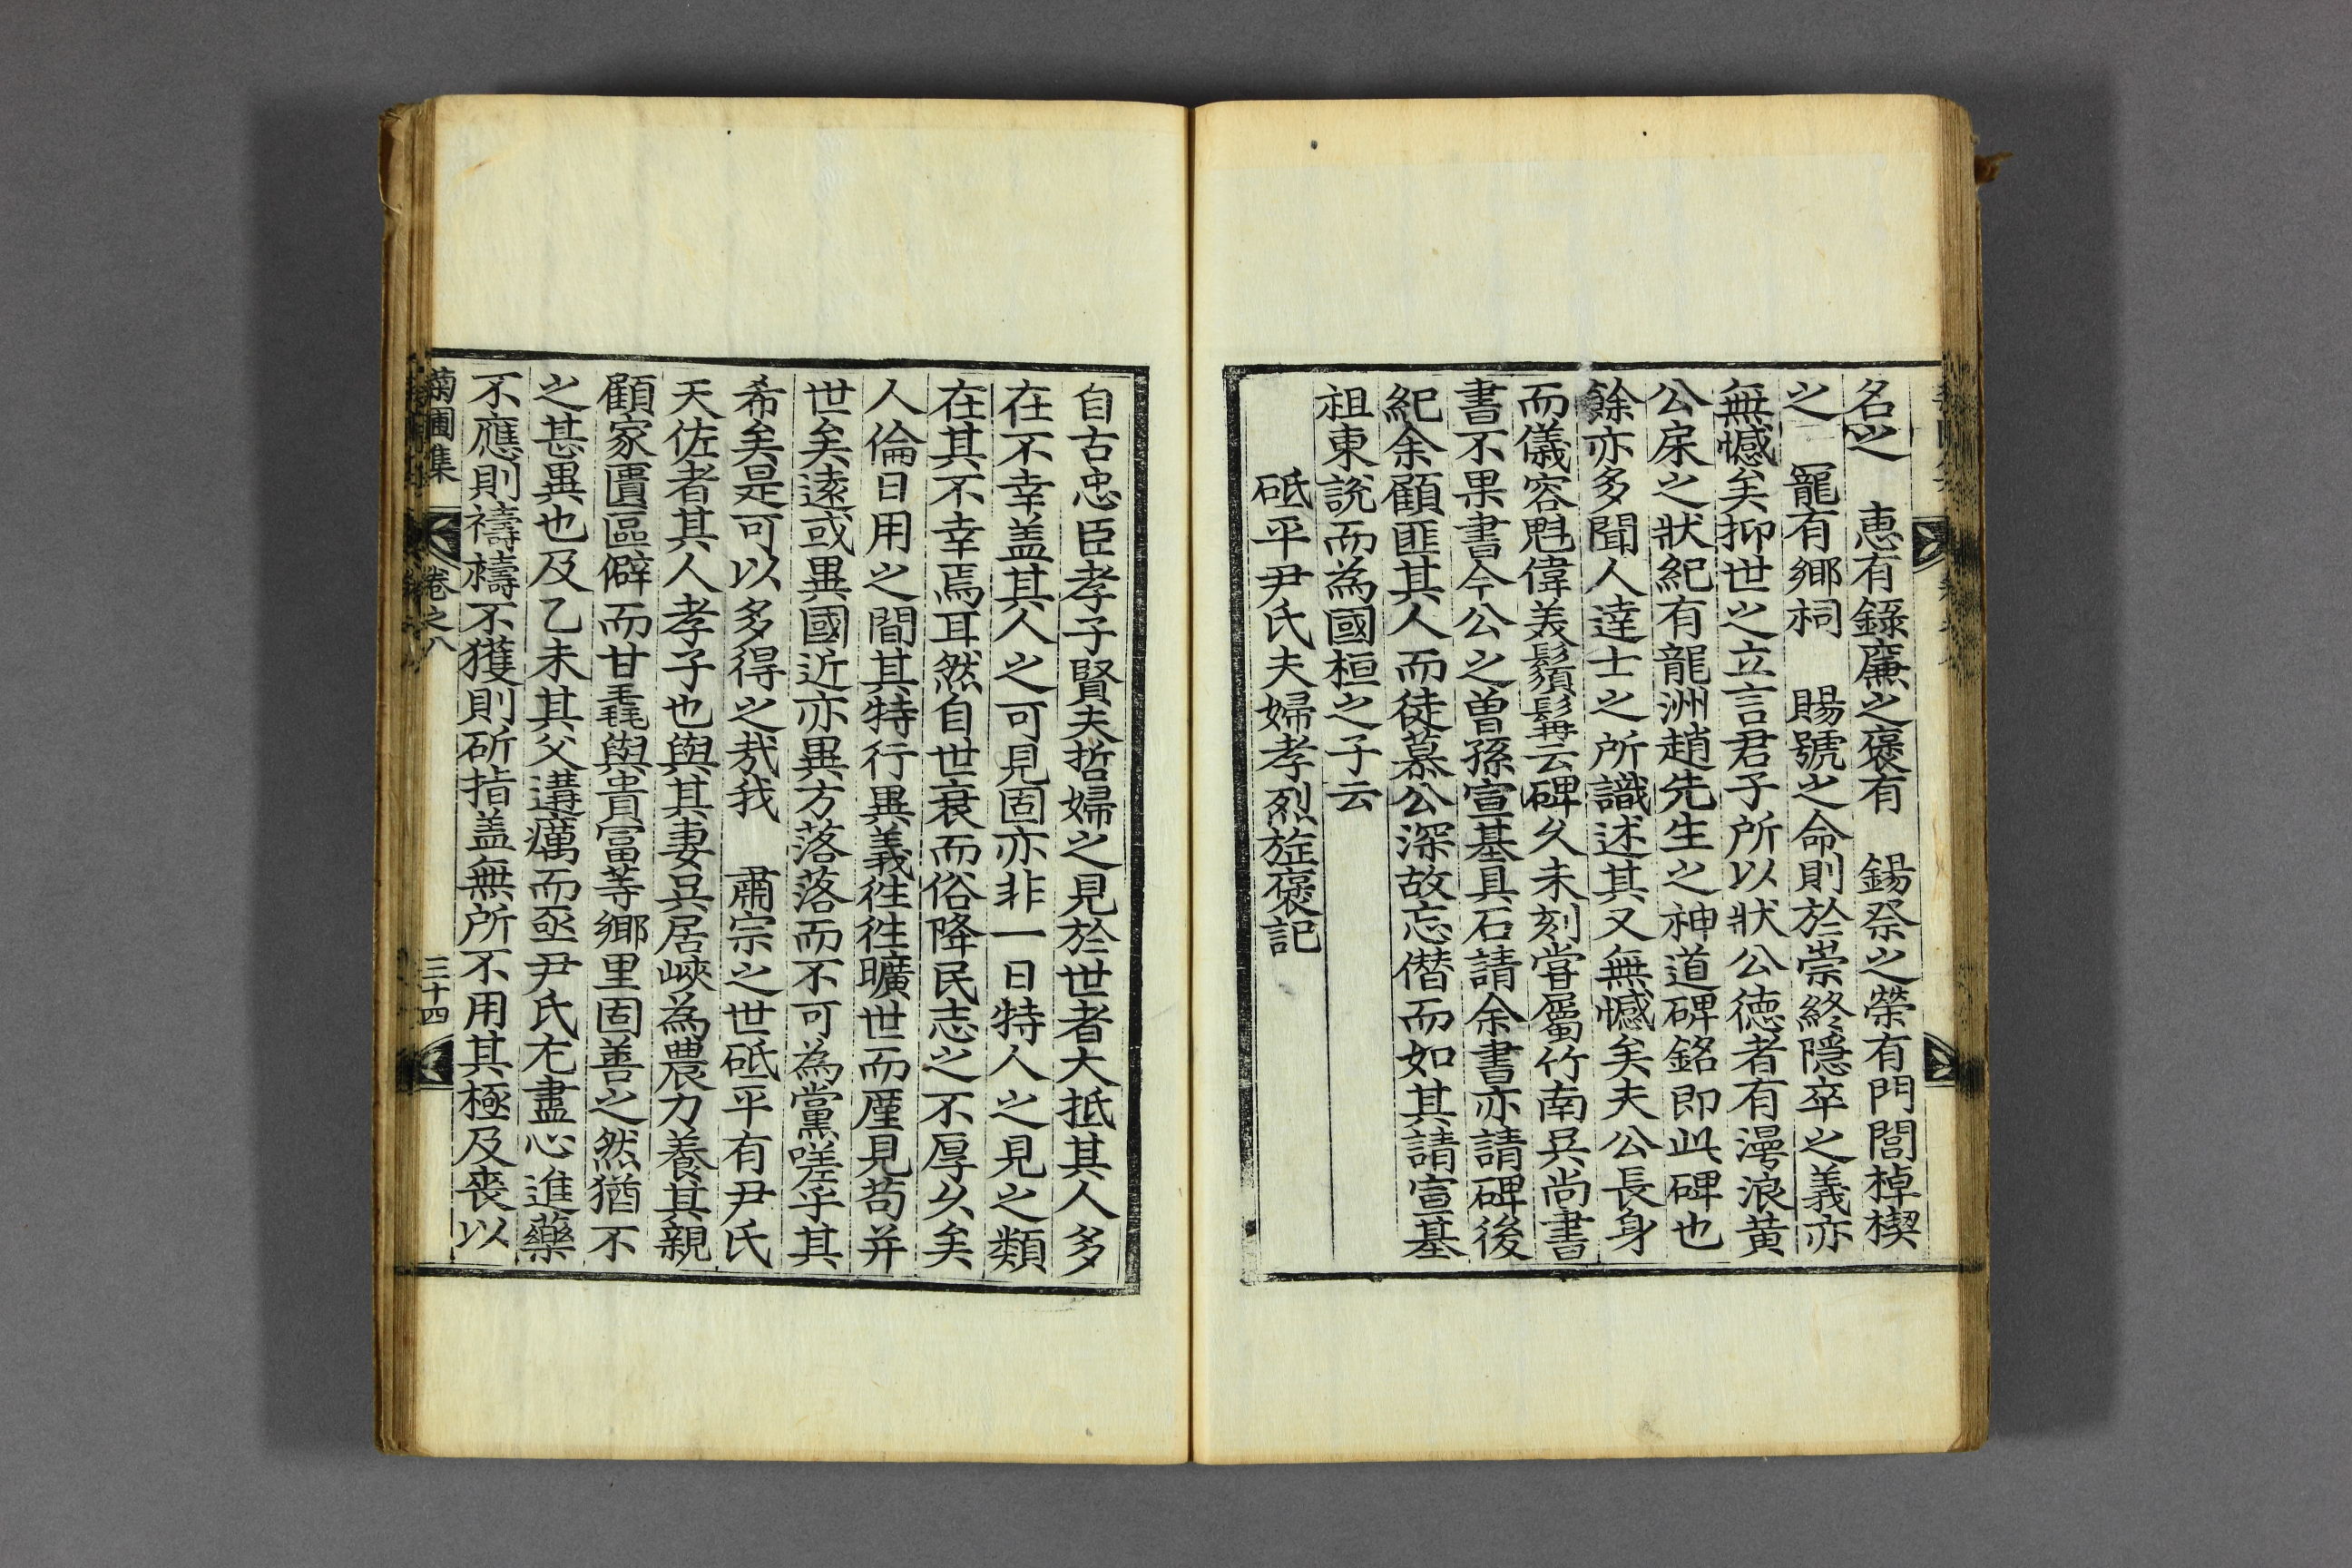 名之　惠有錄廉之褒有　錫祭之榮有門閭棹楔
之　寵有鄕祠　賜號之命則於崇終隱卒之義亦
無憾矣抑世之立言君子所以狀公德者有漫浪黃
公㝎之狀紀有龍洲趙先生之神道碑銘卽此碑也
餘亦多聞人達士之所識述其又無憾矣夫公長身
而儀容魁偉美鬚髯云碑久未刻甞屬竹南吳尙書
書不果書今公之曾孫宣基具石請余書亦請碑後
紀余顧匪其人而徒慕公深故忘僭而如其請宣基
祖東說而為國桓之子云
砥平尹氏夫婦孝烈旌褒記
自古忠臣孝子賢夫哲婦之見於世者大抵其人多
在不幸盖其人之可見固亦非一日特人之見之類
在其不幸焉耳然自世衰而俗降民志之不厚久矣
人倫日用之間其特行異義徃徃曠世而厪見苟并
世矣逺或異國近亦異方落落而不可為黨嗟乎其
希矣是可以多得之㦲我　肅宗之世砥平有尹氏
天佐者其人孝子也與其妻吳居峽為農力養其親
顧家匱區僻而甘毳與貴富等鄕里固善之然猶不
之甚異也及乙未其父遘癘而亟尹氏尢盡心進藥
不應則禱禱不獲則斫指盖無所不用其極及喪以
菊圃集　卷之八　三十四